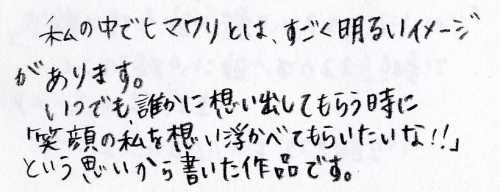 私の中でヒマワリとは、すごく明るいイメージ
があります。
いつでも、誰かに想い出してもらう時に
「笑顔の私を想い浮かべてもらいたいな!!」
という思いから書いた作品です。